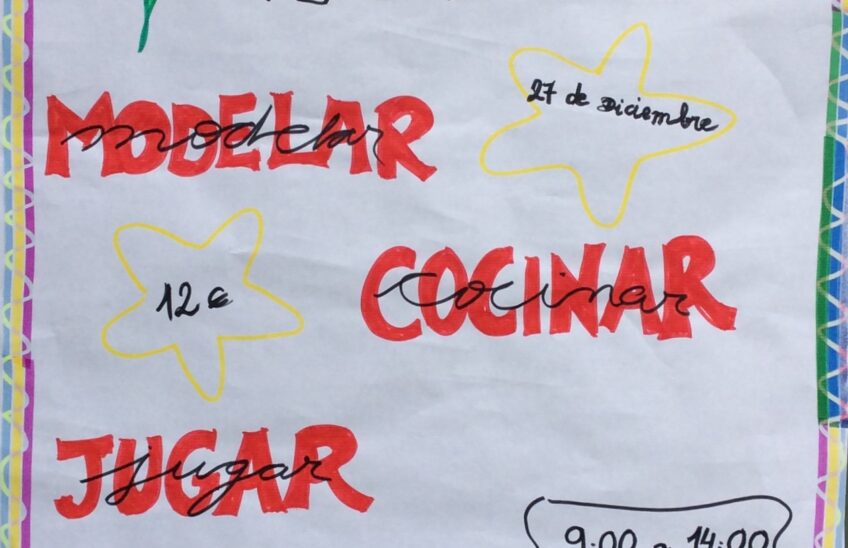 MODELAR
modelar
27 de Diciembre
12 €
COCINAR
cocinar
JUGAR
jugar
9:00 a 14:00